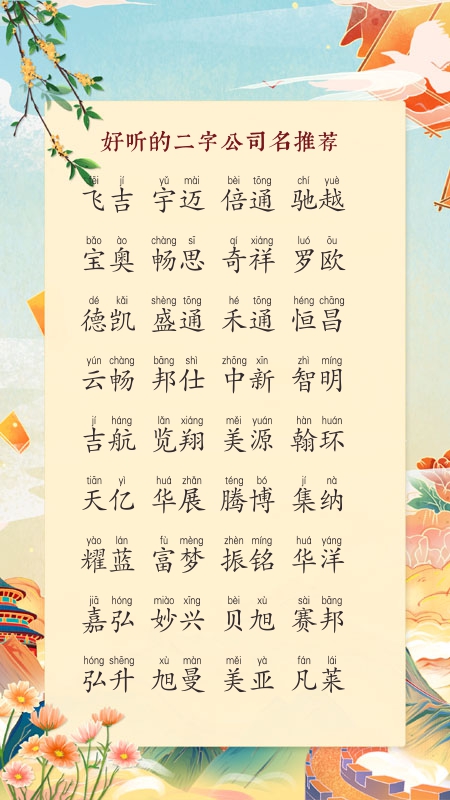 好听的二字公司名推荐
fēi jí yǔ mài bèi tōng chí yuè
飞吉 宇迈 倍通 驰越
bǎo ào chàng sī qí xiáng luó ōu
宝奥 畅思 奇祥 罗欧
dé kǎi shèng tōng hé tōng héng chāng
德凯 盛通 禾通 恒昌
yún chàng bāng shì zhōng xīn zhì míng
云畅 邦仕 中新 智明
jí háng lǎn xiáng měi yuán hàn huán
吉航 览翔 美源 翰环
tiān yì huá zhǎn téng bó jí nà
天亿 华展 腾博 集纳
yào lán fù mèng zhèn míng huá yáng
耀蓝 富梦 振铭 华洋
jiā hóng miào xīng bèi xù sài bāng
嘉弘 妙兴 贝旭 赛邦
hóng shēng xù màn měi yà fán lái
弘升 旭曼 美亚 凡莱